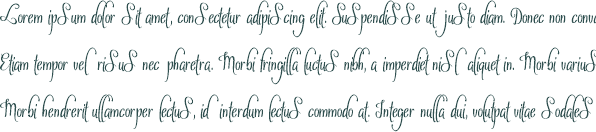 Lorem ipsum dolor sit amet, consectetur adipiscing elit. Suspendisse ut justo diam. Donec non conva
Etiam tempor vel risus nec pharetra. Morbi fringilla luctus nibh, a imperdiet nisl aliquet in. Morbi varius
Morbi hendrerit ullamcorper lectus, id interdum lectus commodo at. Integer nulla dui, volutpat vitae sodales